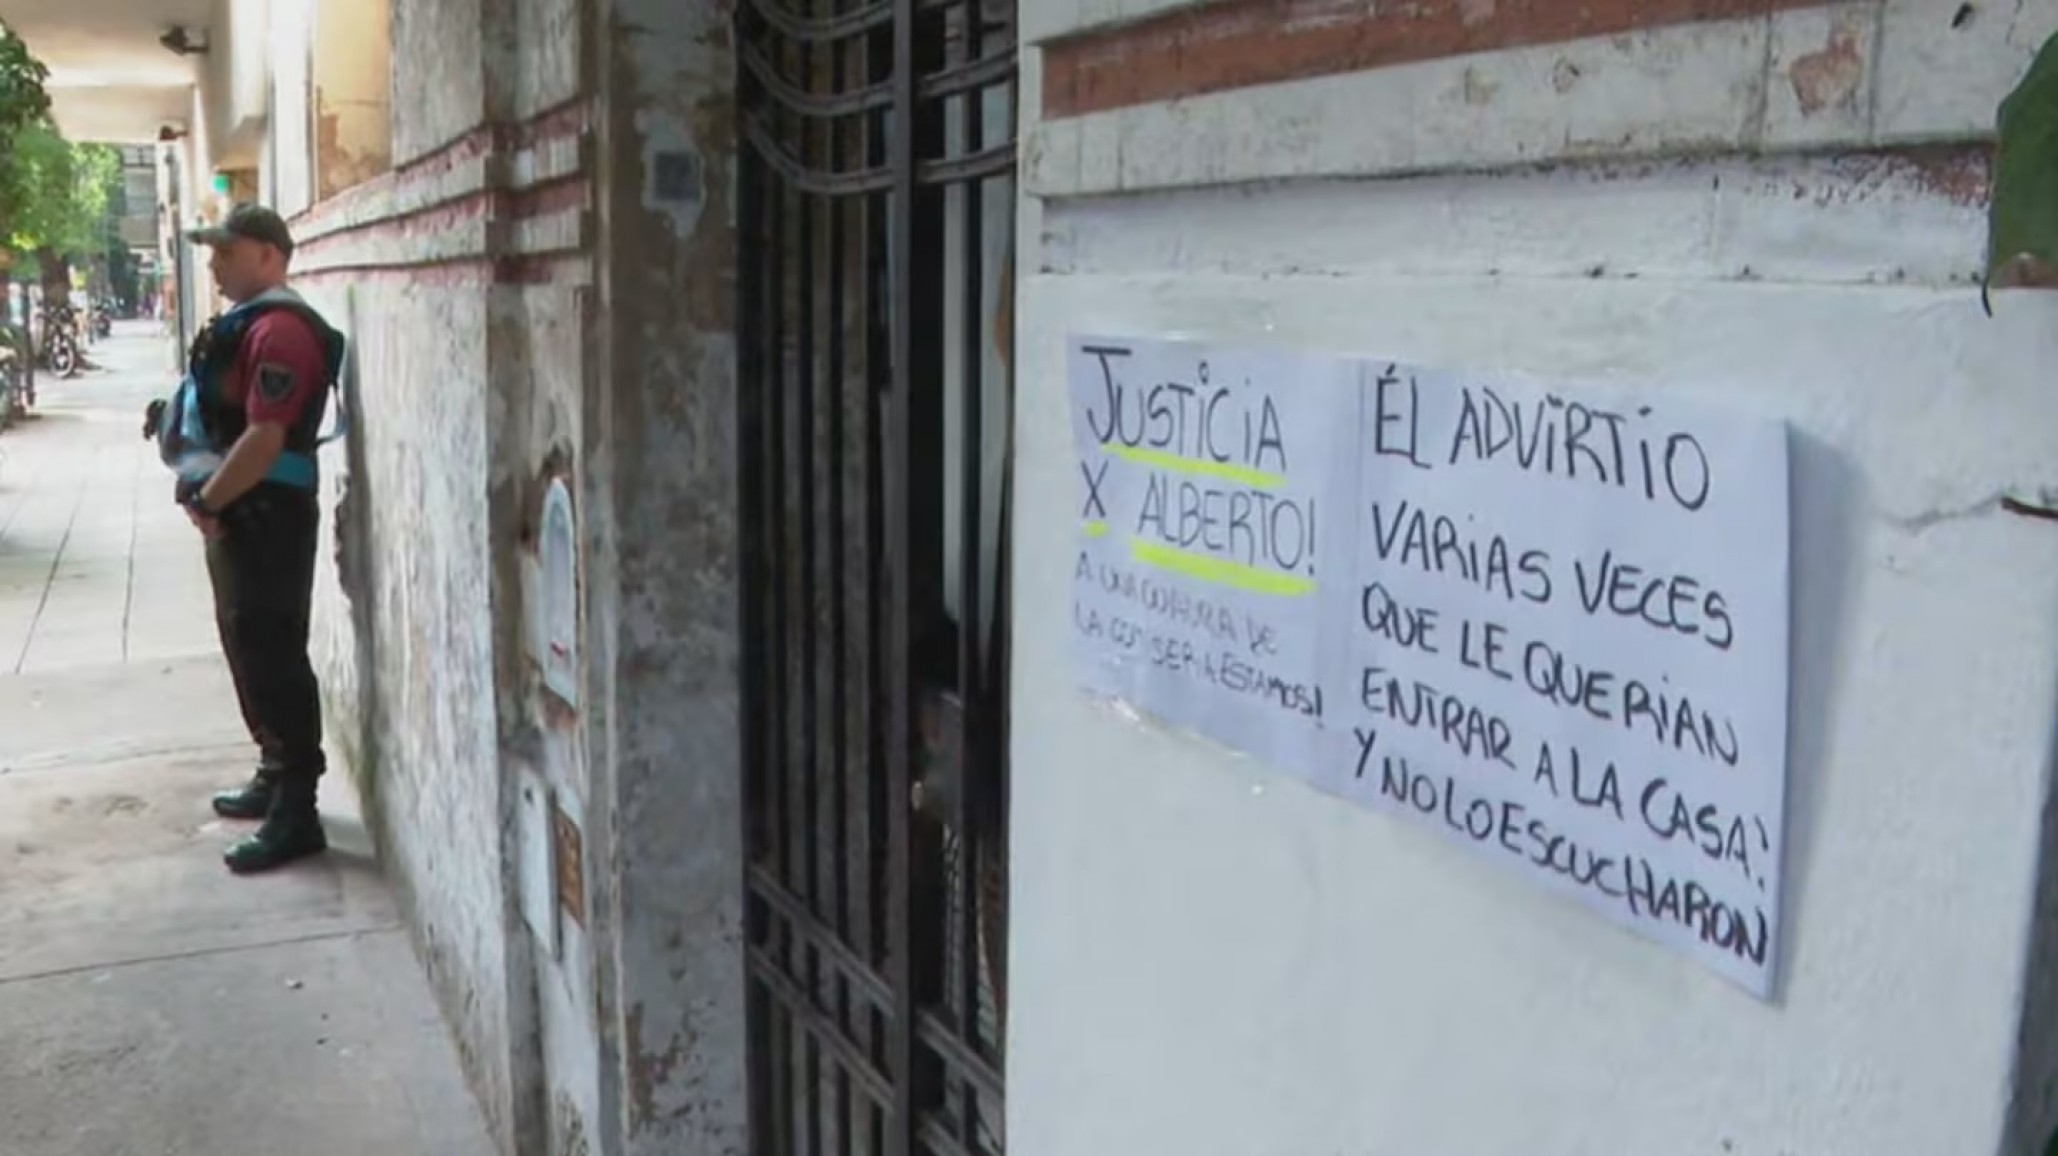 JUSTICIA
X ALBERTO!
A UNA CUADRA DE
LA COMISERIA ESTAMOS!
ÉL ADVIRTIO
VARIAS VECES
QUE LE QUERIAN
ENTRAR A LA CASA!
Y NO LO ESCUCHARON